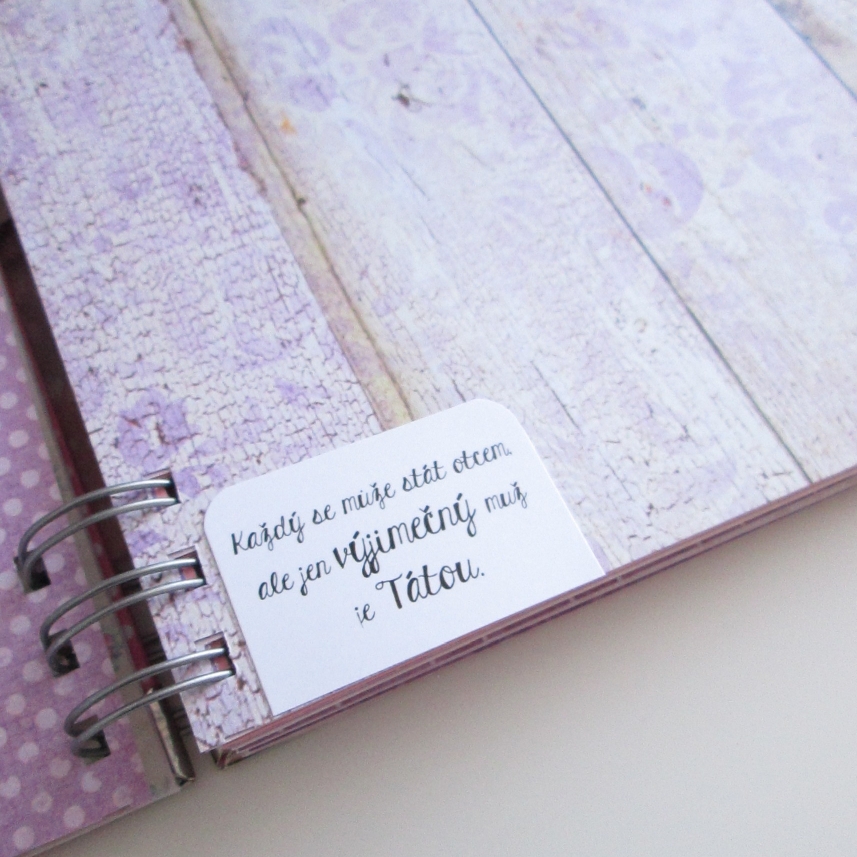 Každý se může stát otcem,
ale jen výjimečný muž
je Tátou.